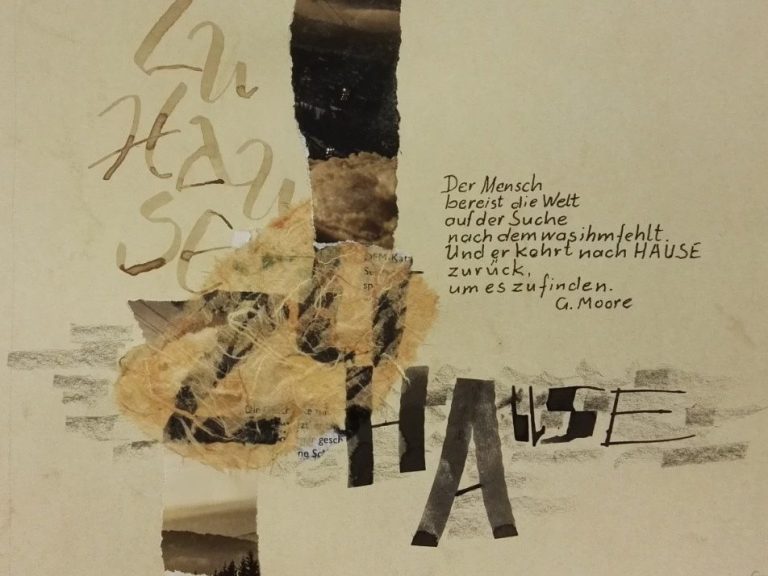 Zu
HAU
SE
Der Mensch
bereist die Welt
auf der Suche
nach dem was ihm fehlt.
Und er kehrt nach HAUSE
zurück,
um es zu finden.
G. Moore
ZU
HAUSE